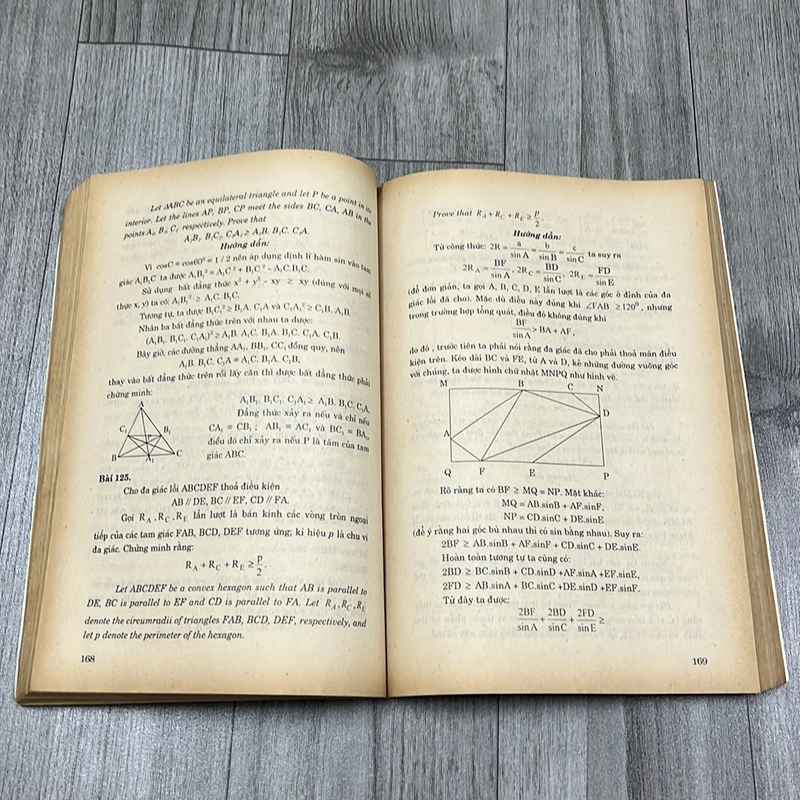 Let ΔABC be an equilateral triangle and let P be a point in its
interior. Let the lines AP, BP, CP meet the sides BC, CA, AB in the
points A₁, B₁, C₁ respectively. Prove that
A₁B₁. B₁C₁. C₁A₁ ≥ A₁B. B₁C. C₁A.
Hướng dẫn:
Vì cosC = cos60⁰ = 1/2 nên áp dụng định lí hàm sin vào tam
giác A₁B₁C ta được A₁B₁² = A₁C² + B₁C² – A₁C.B₁C.
Sử dụng bất đẳng thức x² + y² – xy ≥ xy (đúng với mọi số
thực x, y) ta có: A₁B₁² ≥ A₁C. B₁C.
Tương tự, ta được B₁C₁² ≥ B₁A. C₁A và C₁A₁² ≥ C₁B. A₁B.
Nhân ba bất đẳng thức trên với nhau ta được:
(A₁B₁. B₁C₁. C₁A₁)² ≥ A₁B. A₁C. B₁A. B₁C. C₁A. C₁B.
Bây giờ, các đường thẳng AA₁, BB₁, CC₁ đồng quy, nên
A₁B. B₁C. C₁A = A₁C. B₁A. C₁B,
thay vào bất đẳng thức trên rồi lấy căn thì được bất đẳng thức phải
chứng minh:
A₁B₁. B₁C₁. C₁A₁ ≥ A₁B. B₁C. C₁A.
Dấu đẳng thức xảy ra nếu và chỉ nếu
CA₁ = CB₁ ; AB₁ = AC₁ và BC₁ = BA₁,
điều đó chỉ xảy ra nếu P là tâm của tam
giác ABC.
A
C₁ B₁
B A₁ C
Bài 125.
Cho đa giác lồi ABCDEF thoả điều kiện
AB // DE, BC // EF, CD // FA.
Gọi R_A, R_C, R_E lần lượt là bán kính các vòng tròn ngoại
tiếp của các tam giác FAB, BCD, DEF tương ứng; kí hiệu p là chu vi
đa giác. Chứng minh rằng:
R_A + R_C + R_E ≥ p/2.
Let ABCDEF be a convex hexagon such that AB is parallel to
DE, BC is parallel to EF and CD is parallel to FA. Let R_A, R_C, R_E
denote the circumradii of triangles FAB, BCD, DEF, respectively, and
let p denote the perimeter of the hexagon.
168
Prove that R_A + R_C + R_E ≥ p/2.
Hướng dẫn:
Từ công thức: 2R = a/sin A = b/sin B = c/sin C ta suy ra
2R_A = BF/sin A, 2R_C = BD/sin C, 2R_E = FD/sin E
(để đơn giản, ta gọi A, B, C, D, E lần lượt là các góc ở đỉnh của đa
giác lồi đã cho). Mặc dù điều này đúng khi ∠FAB ≥ 120⁰, nhưng
trong trường hợp tổng quát, điều đó không đúng khi
BF/sin A > BA + AF,
do đó, trước tiên ta phải nói rằng đa giác đã cho phải thoả mãn điều
kiện trên. Kéo dài BC và FE, từ A và D, kẻ những đường vuông góc
với chúng, ta được hình chữ nhật MNPQ như hình vẽ.
M B C N
D
A
Q F E P
Rõ ràng ta có BF ≥ MQ = NP. Mặt khác:
MQ = AB.sinB + AF.sinF,
NP = CD.sinC + DE.sinE
(để ý rằng hai góc bù nhau thì có sin bằng nhau). Suy ra:
2BF ≥ AB.sinB + AF.sinF + CD.sinC + DE.sinE.
Hoàn toàn tương tự ta cũng có:
2BD ≥ BC.sinB + CD.sinD +AF.sinA +EF.sinE,
2FD ≥ AB.sinA + BC.sinC +DE.sinD +EF.sinF.
Từ đây ta được:
2BF/sin A + 2BD/sin C + 2FD/sin E ≥
169